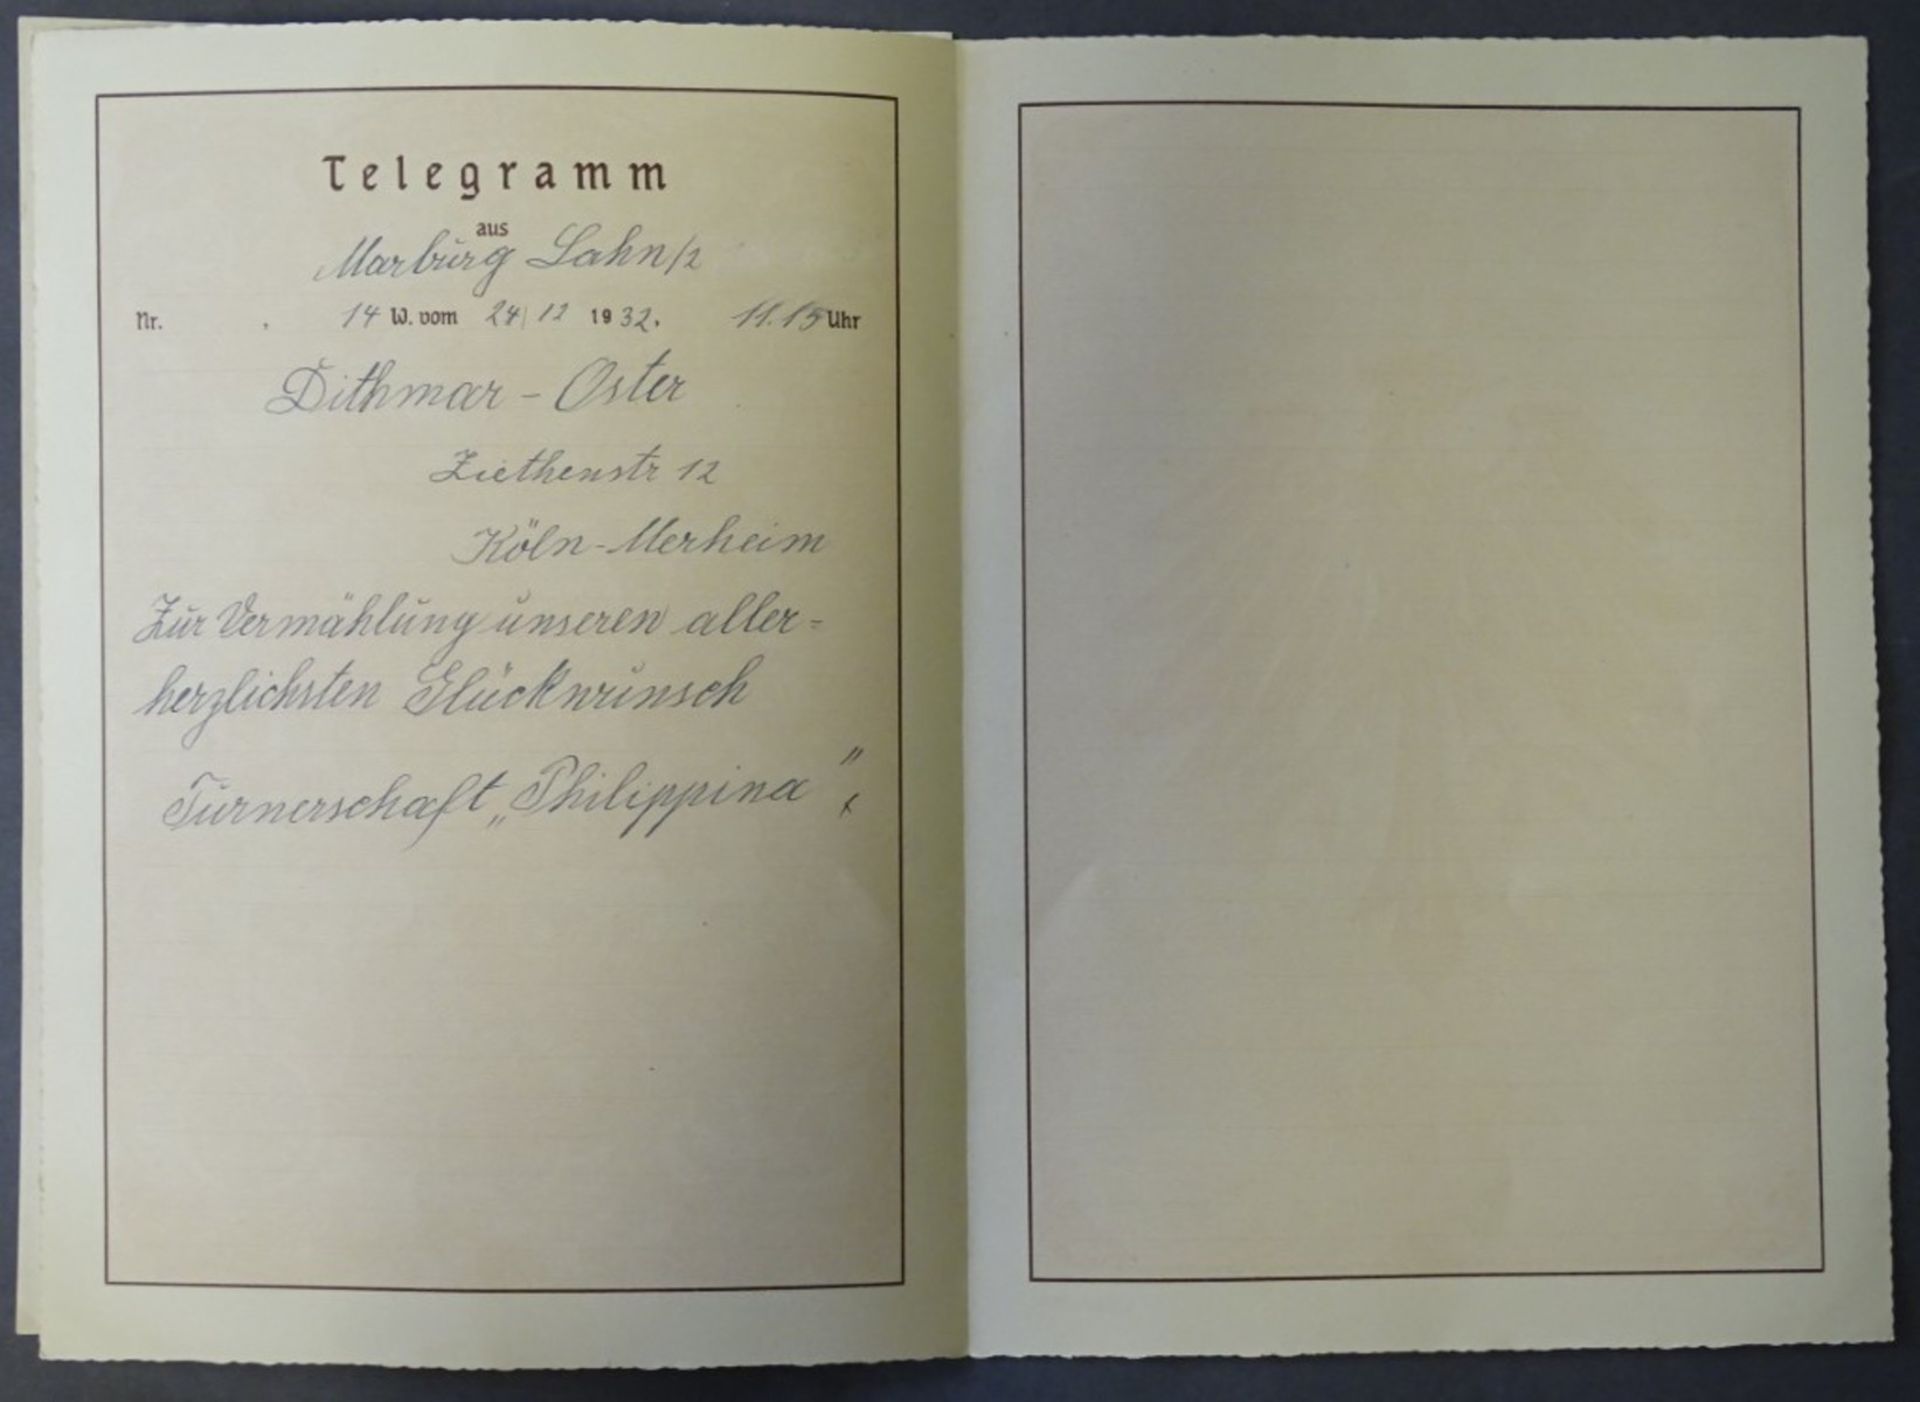 Telegramm
aus
Marburg Lahn/2
Nr. 14 W. vom 24/12 1932. 11.15 Uhr
Dithmar - Oster
Ziethenstr 12
Köln-Merheim
Zur Vermählung unseren aller=
herzlichsten Glückwunsch
Turnerschaft „Philippina"